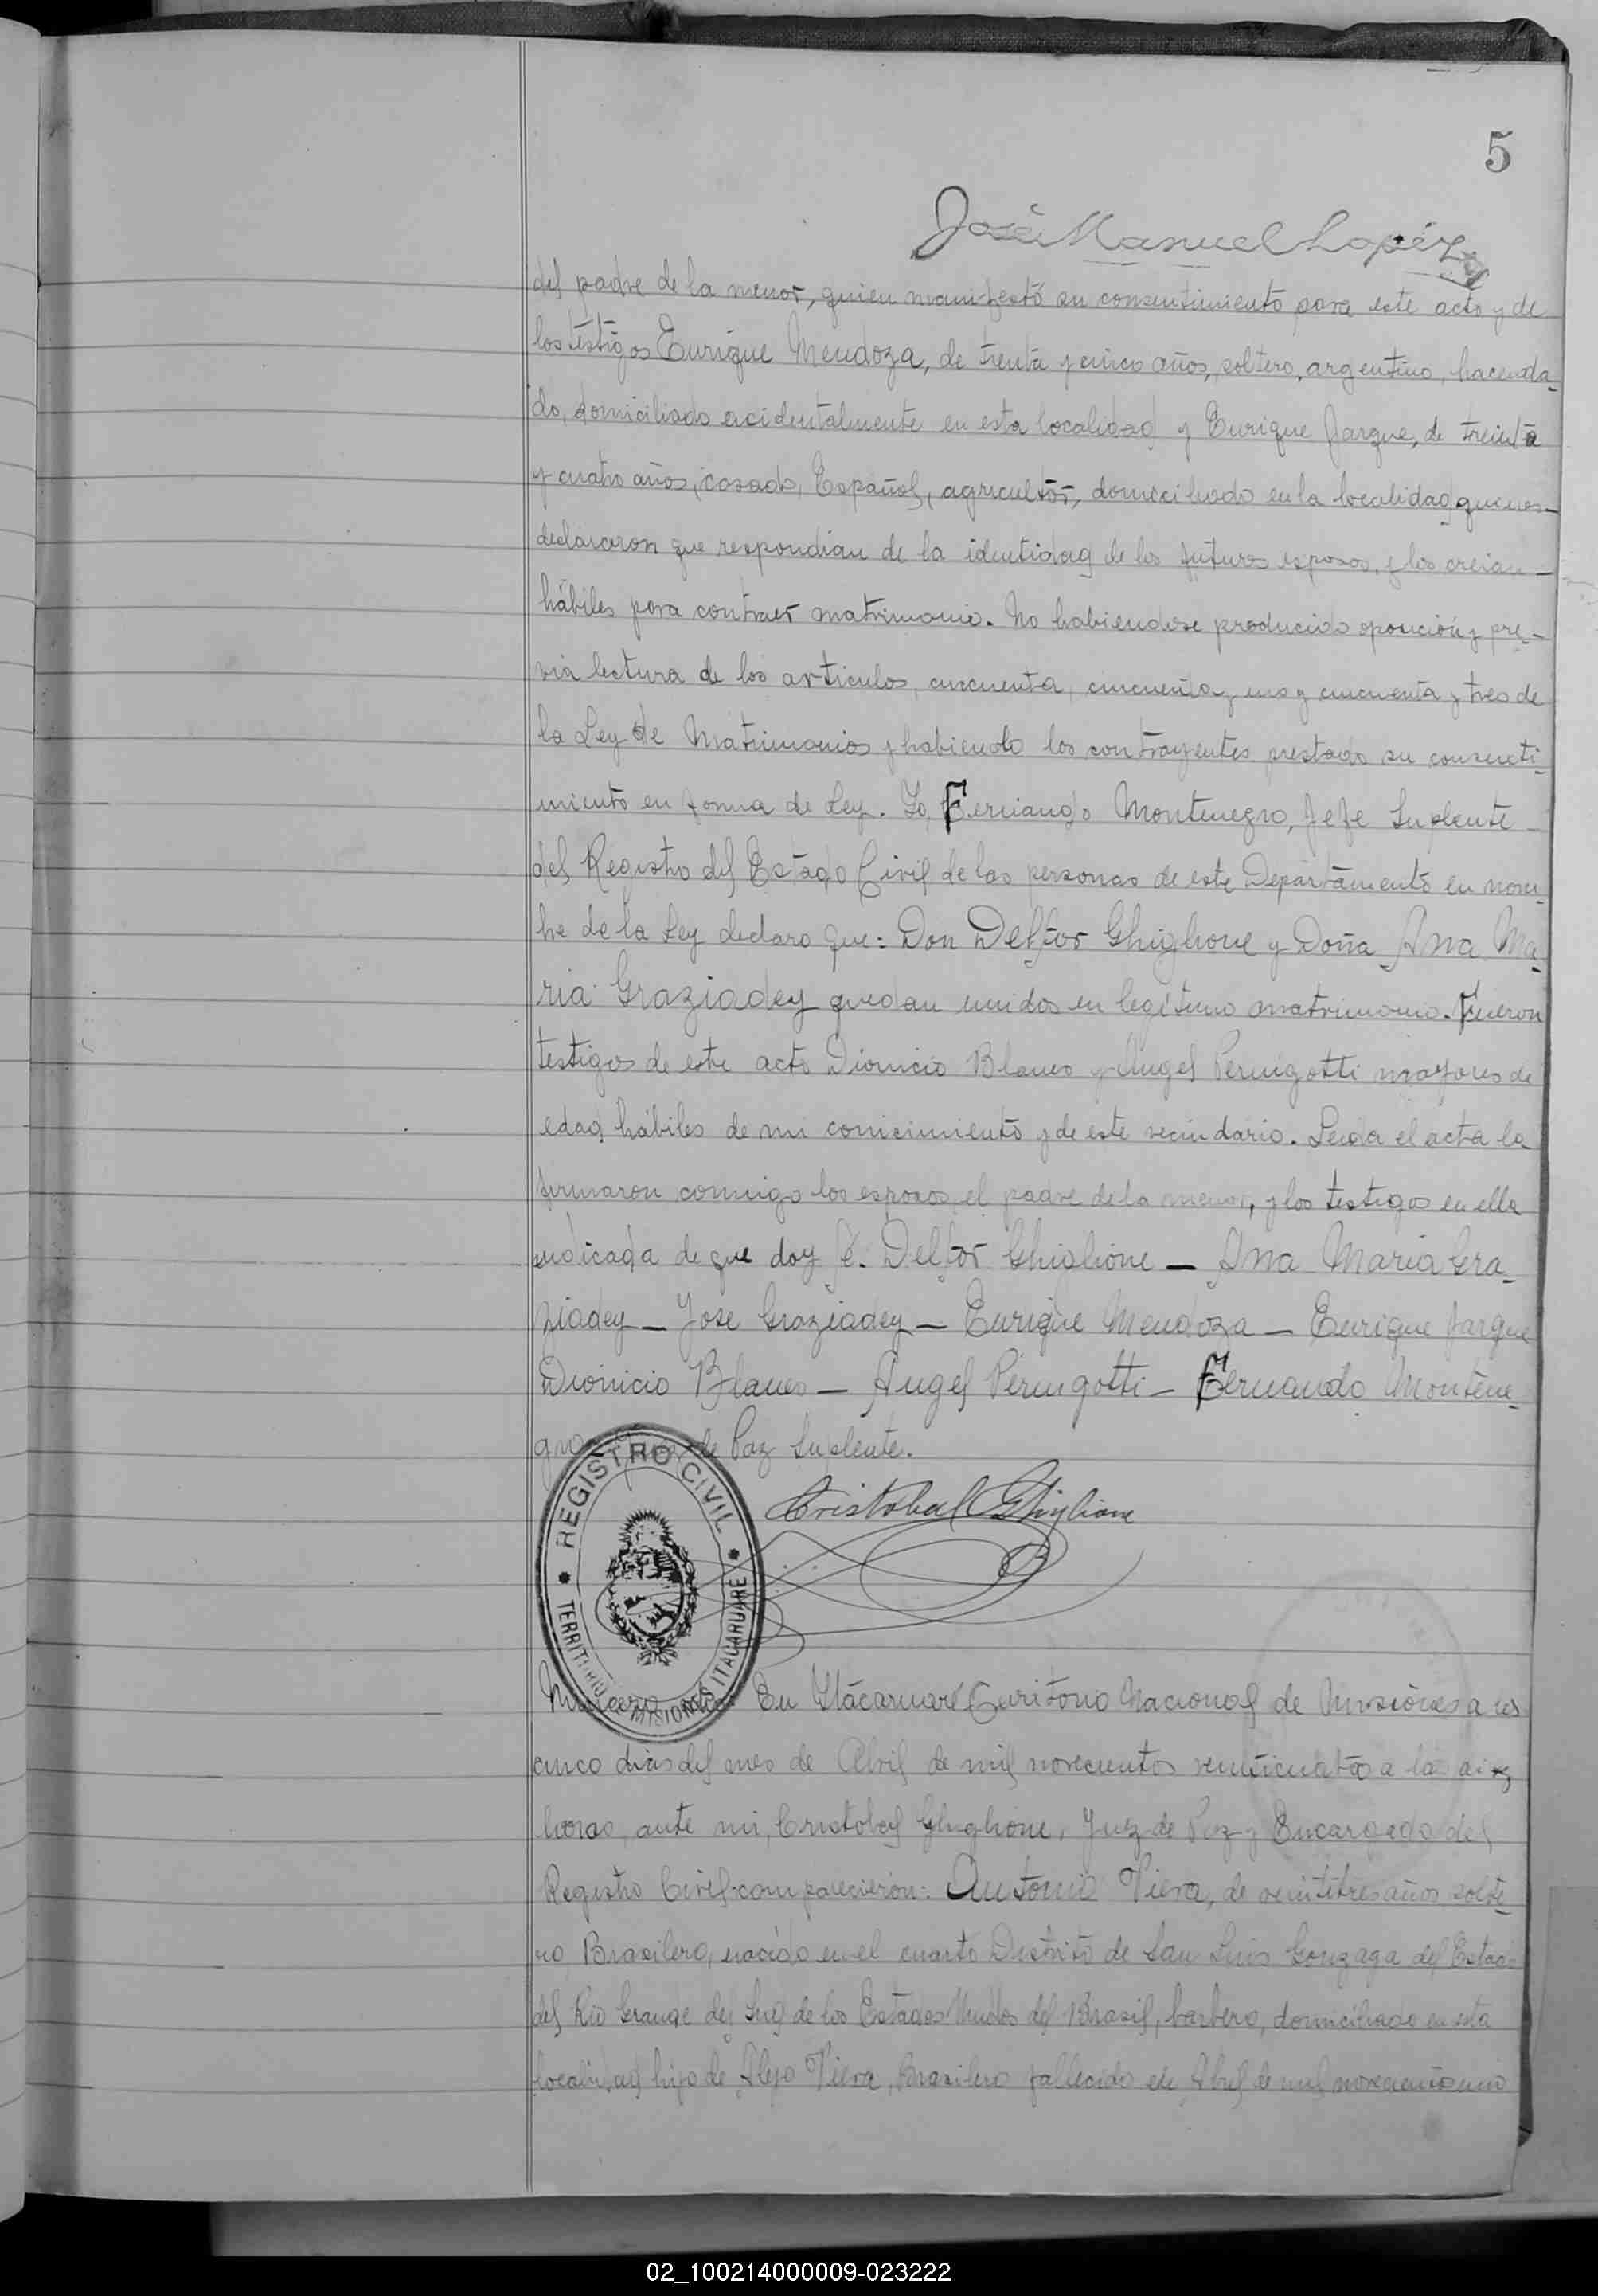 5
José Manuel Lopéz
del padre de la menor, quien manifestó su consentimiento para este acto y de
los testigos Enrique Mendoza, de trenta y cinco años, soltero, argentino, hacenda-
do, domiciliado accidentalmente en esta localidad y Enrique Jargue, de treinta
y cuatro años, casado, Español, agricultor, domiciliado en la localidad quienes
declararon que respondian de la identidad de los futuros esposos, y los creian
hábiles para contraer matrimonio. No habiendose producido oposición y pre-
via lectura de los articulos cincuenta, cincuenta y uno y cincuenta y tres de
la Ley de Matrimonios y habiendo los contrayentes prestado su consenti-
miento en forma de Ley. Yo, Fernando Montenegro, Jefe Suplente
del Registro del Estado Civil de las personas de este Departamento en nom-
bre de la Ley declaro que: Don Delfor Ghiglione y Doña Ana Ma-
ria Graziadey quedan unidos en legítimo matrimonio. Fueron
testigos de este acto Dionicio Blanco y Angel Pernigotti mayores de
edad, hábiles de mi conicimiento y de este vecindario. Leida el acta la
firmaron conmigo los esposos, el padre de la menor, y los testigos en ella
indicada de que doy fé. Delfor Ghiglione — Ana Maria Gra-
ziadey — Jose Graziadey — Enrique Mendoza — Enrique Jargue
Dionicio Blanco — Angel Pernigotti — Fernando Montene-
gro Juez de Paz Suplente.
Cristobal Ghiglione
REGISTRO CIVIL
TERRITORIO MISIONES ITACARUARE
Número En Itacaruaré Territorio Nacional de Misiones a los
cinco dias del mes de Abril de mil novecientos veinticuatro a las diez
horas, ante mi, Cristobal Ghiglione, Juez de Paz y Encargado del
Registro Civil comparecieron: Antonio Viera, de veintitres años, solte-
ro, Brasilero, nacido en el cuarto Distrito de San Luis Gonzaga del Estado
del Rio Grande del Sud de los Estados Unidos del Brasil, barbero, domiciliado en esta
localidad, hijo de Alejo Viera, Brasilero fallecido en Abril de mil novecientos uno
02_100214000009-023222